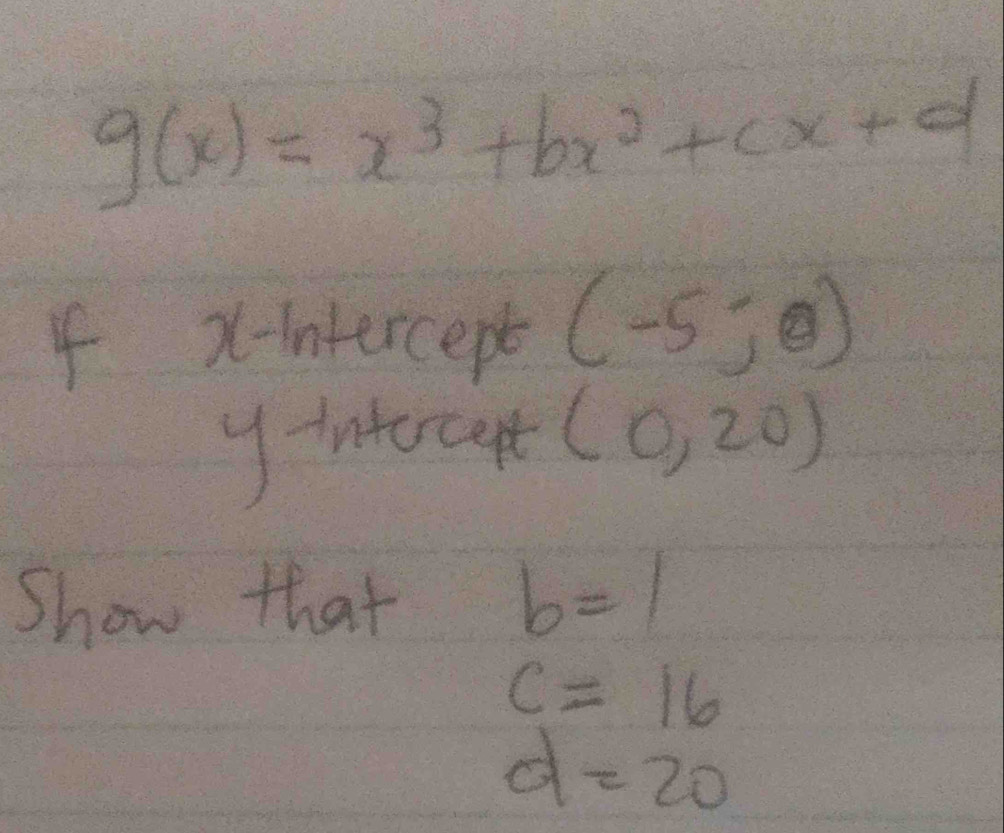 g(x) = x³ + bx² + cx + d
If x-Intercept (-5; 0)
y-Intercept (0, 20)
Show that b = 1
c = 16
d = 20